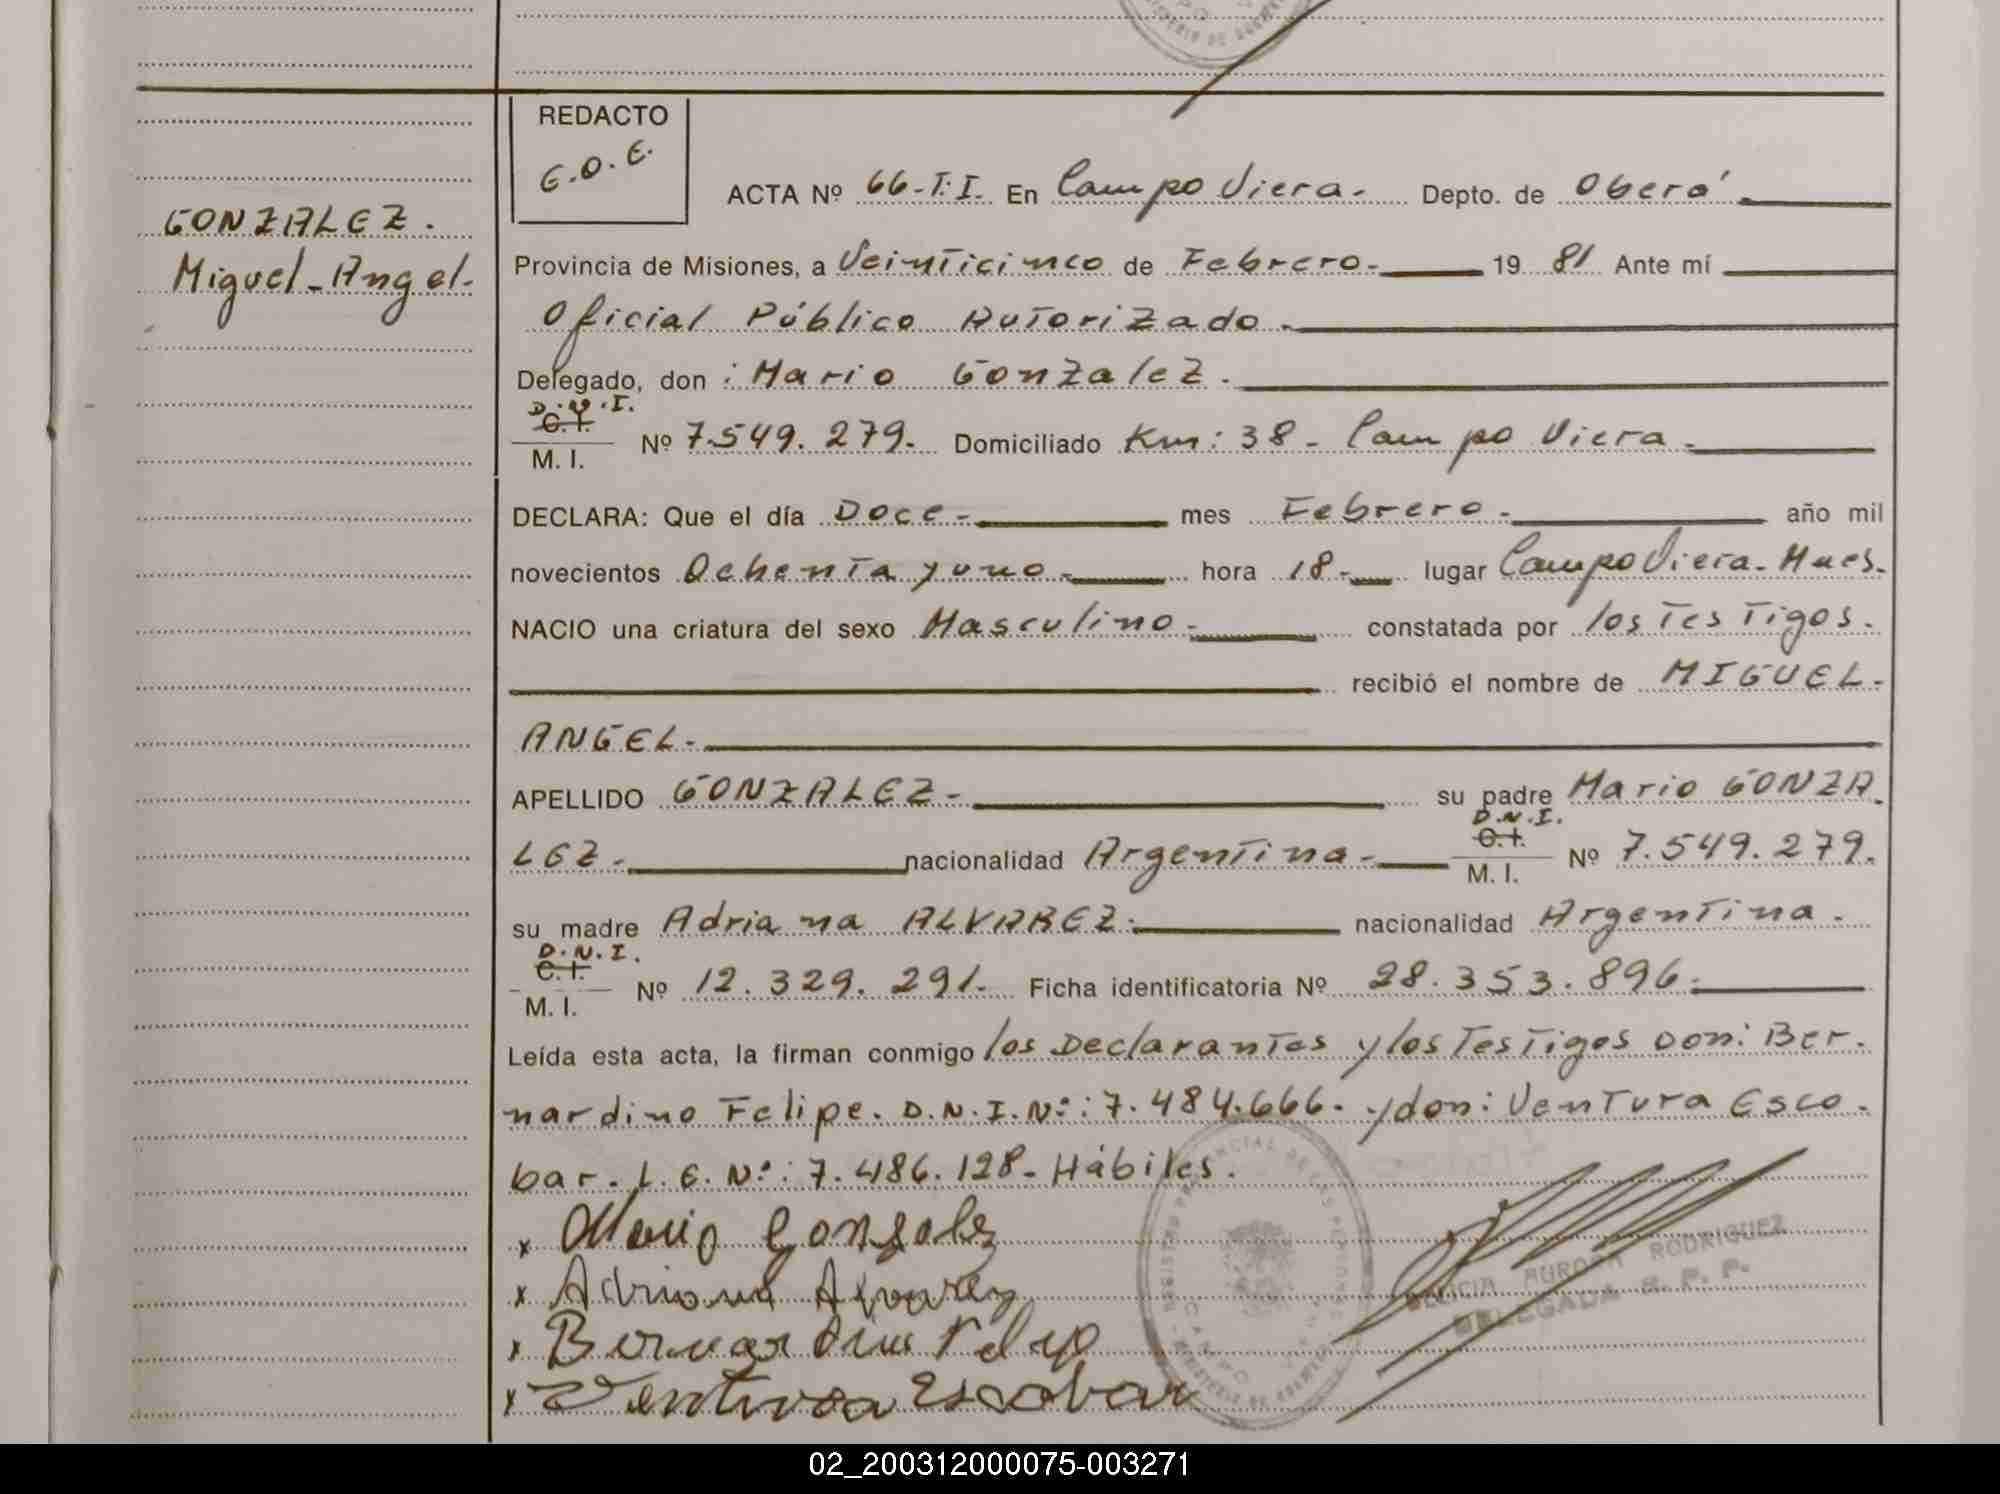 REDACTO
G.O.E.
ACTA Nº 66-T:I. En Campo Viera. Depto. de Oberá
GONZALEZ.
Miguel-Angel.
Provincia de Misiones, a Veinticinco de Febrero. 19 81 Ante mí
Oficial Público Autorizado.
Delegado, don : Mario Gonzalez.
D.N.I.
C.I.
M. I.
Nº 7.549.279. Domiciliado Km: 38 - Campo Viera.
DECLARA: Que el día Doce- mes Febrero. año mil
novecientos Ochenta y uno. hora 18- lugar Campo Viera. Mnes.
NACIO una criatura del sexo Masculino. constatada por los Testigos.
recibió el nombre de MIGUEL-
ANGEL.
APELLIDO GONZALEZ- su padre Mario GONZA
D.N.I.
C.I.
M. I.
LEZ. nacionalidad Argentina- Nº 7.549.279.
su madre Adriana ALVAREZ. nacionalidad Argentina.
D.N.I.
C.I.
M. I.
Nº 12.329.291. Ficha identificatoria Nº 28.353.896.
Leída esta acta, la firman conmigo los Declarantes y los Testigos Don: Ber.
nardino Felipe. D.N.I.Nº: 7.484.666. y don: Ventura Esco.
bar. L.E. Nº: 7.486.128- Hábiles.
x Mario Gonzalez
x Adriana Alvarez
x Bernardino Felip
x Ventura Escobar
REGISTRO PROVINCIAL DE LAS PERSONAS
CAMPO VIERA
MINISTERIO DE GOBIERNO
FELICIA AURORA RODRIGUEZ
DELEGADA R. P. P.
02_200312000075-003271